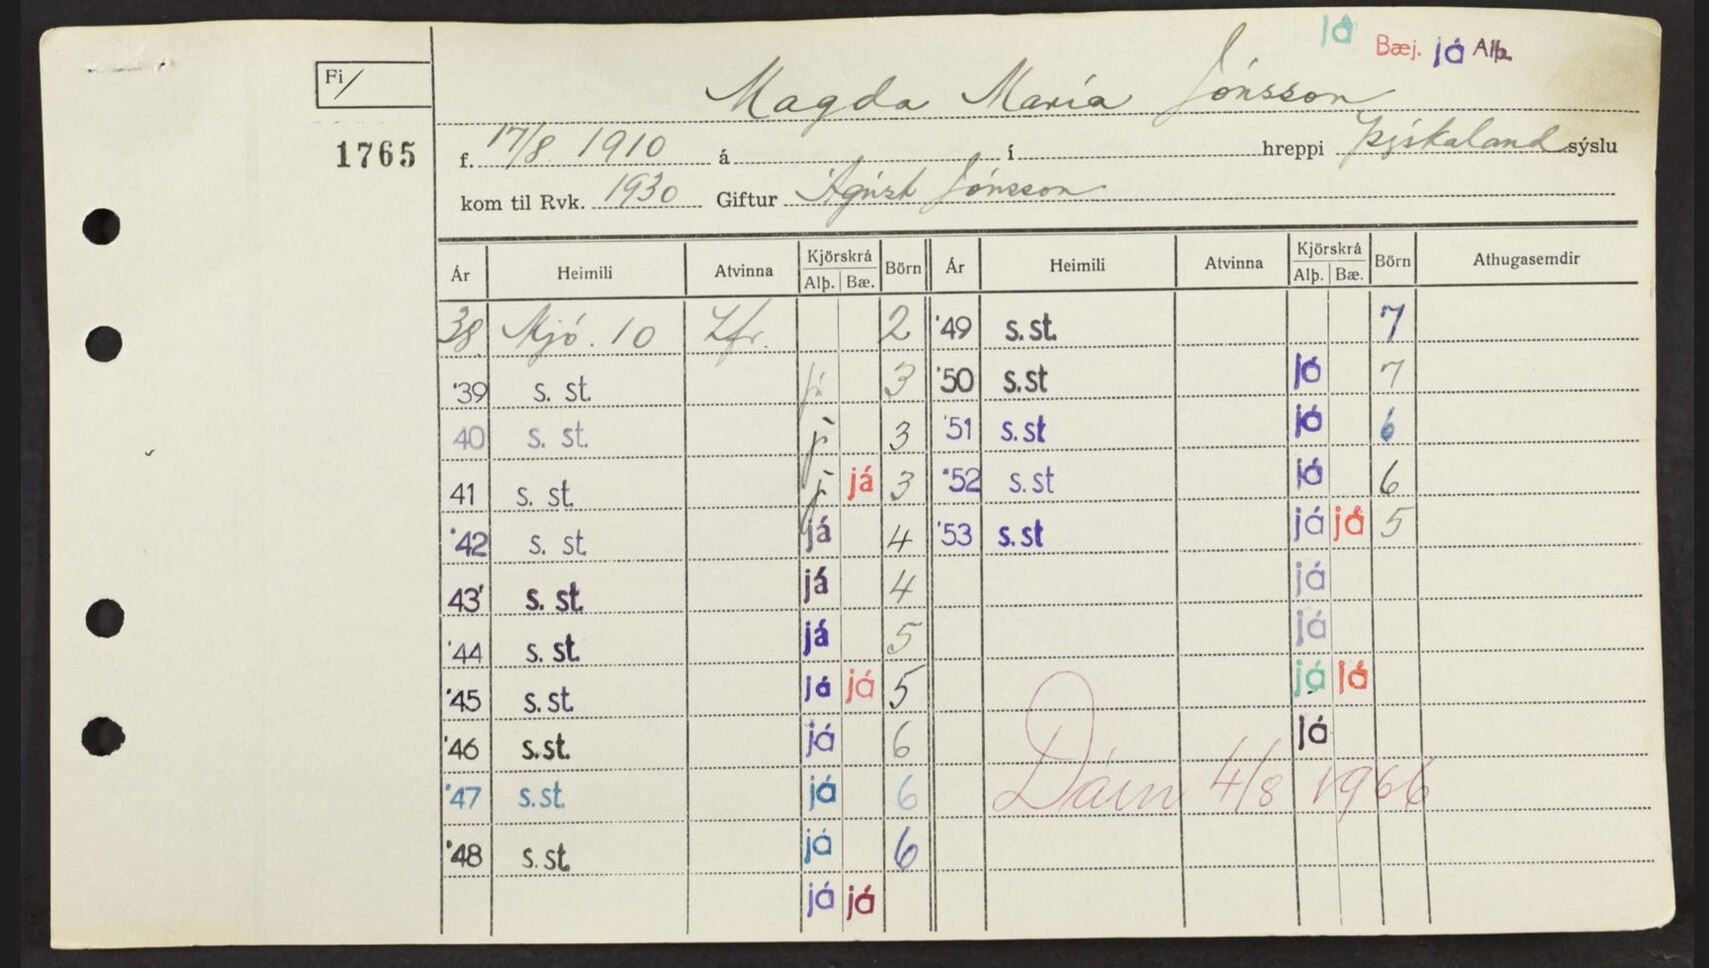 já Bæj. já Alþ.
Fi/
Magda María Jónsson
1765
f. 17/8 1910 á í hreppi Þýskaland sýslu
kom til Rvk. 1930 Giftur Ágúst Jónsson
Ár Heimili Atvinna Kjörskrá Börn Ár Heimili Atvinna Kjörskrá Börn Athugasemdir
Alþ. Bæ. Alþ. Bæ.
38 Mjó. 10 Hfr. 2 '49 s.st. 7
'39 s. st. já 3 '50 s.st já 7
40 s. st. j 3 '51 s.st já 6
41 s. st. j já 3 '52 s.st já 6
'42 s. st já 4 '53 s.st já já 5
43' s. st. já 4 já
'44 s. st. já 5 já
'45 s. st. já já 5 já já
'46 s.st. já 6 já
'47 s.st. já 6 Dáin 4/8 1966
'48 s.st. já 6
já já